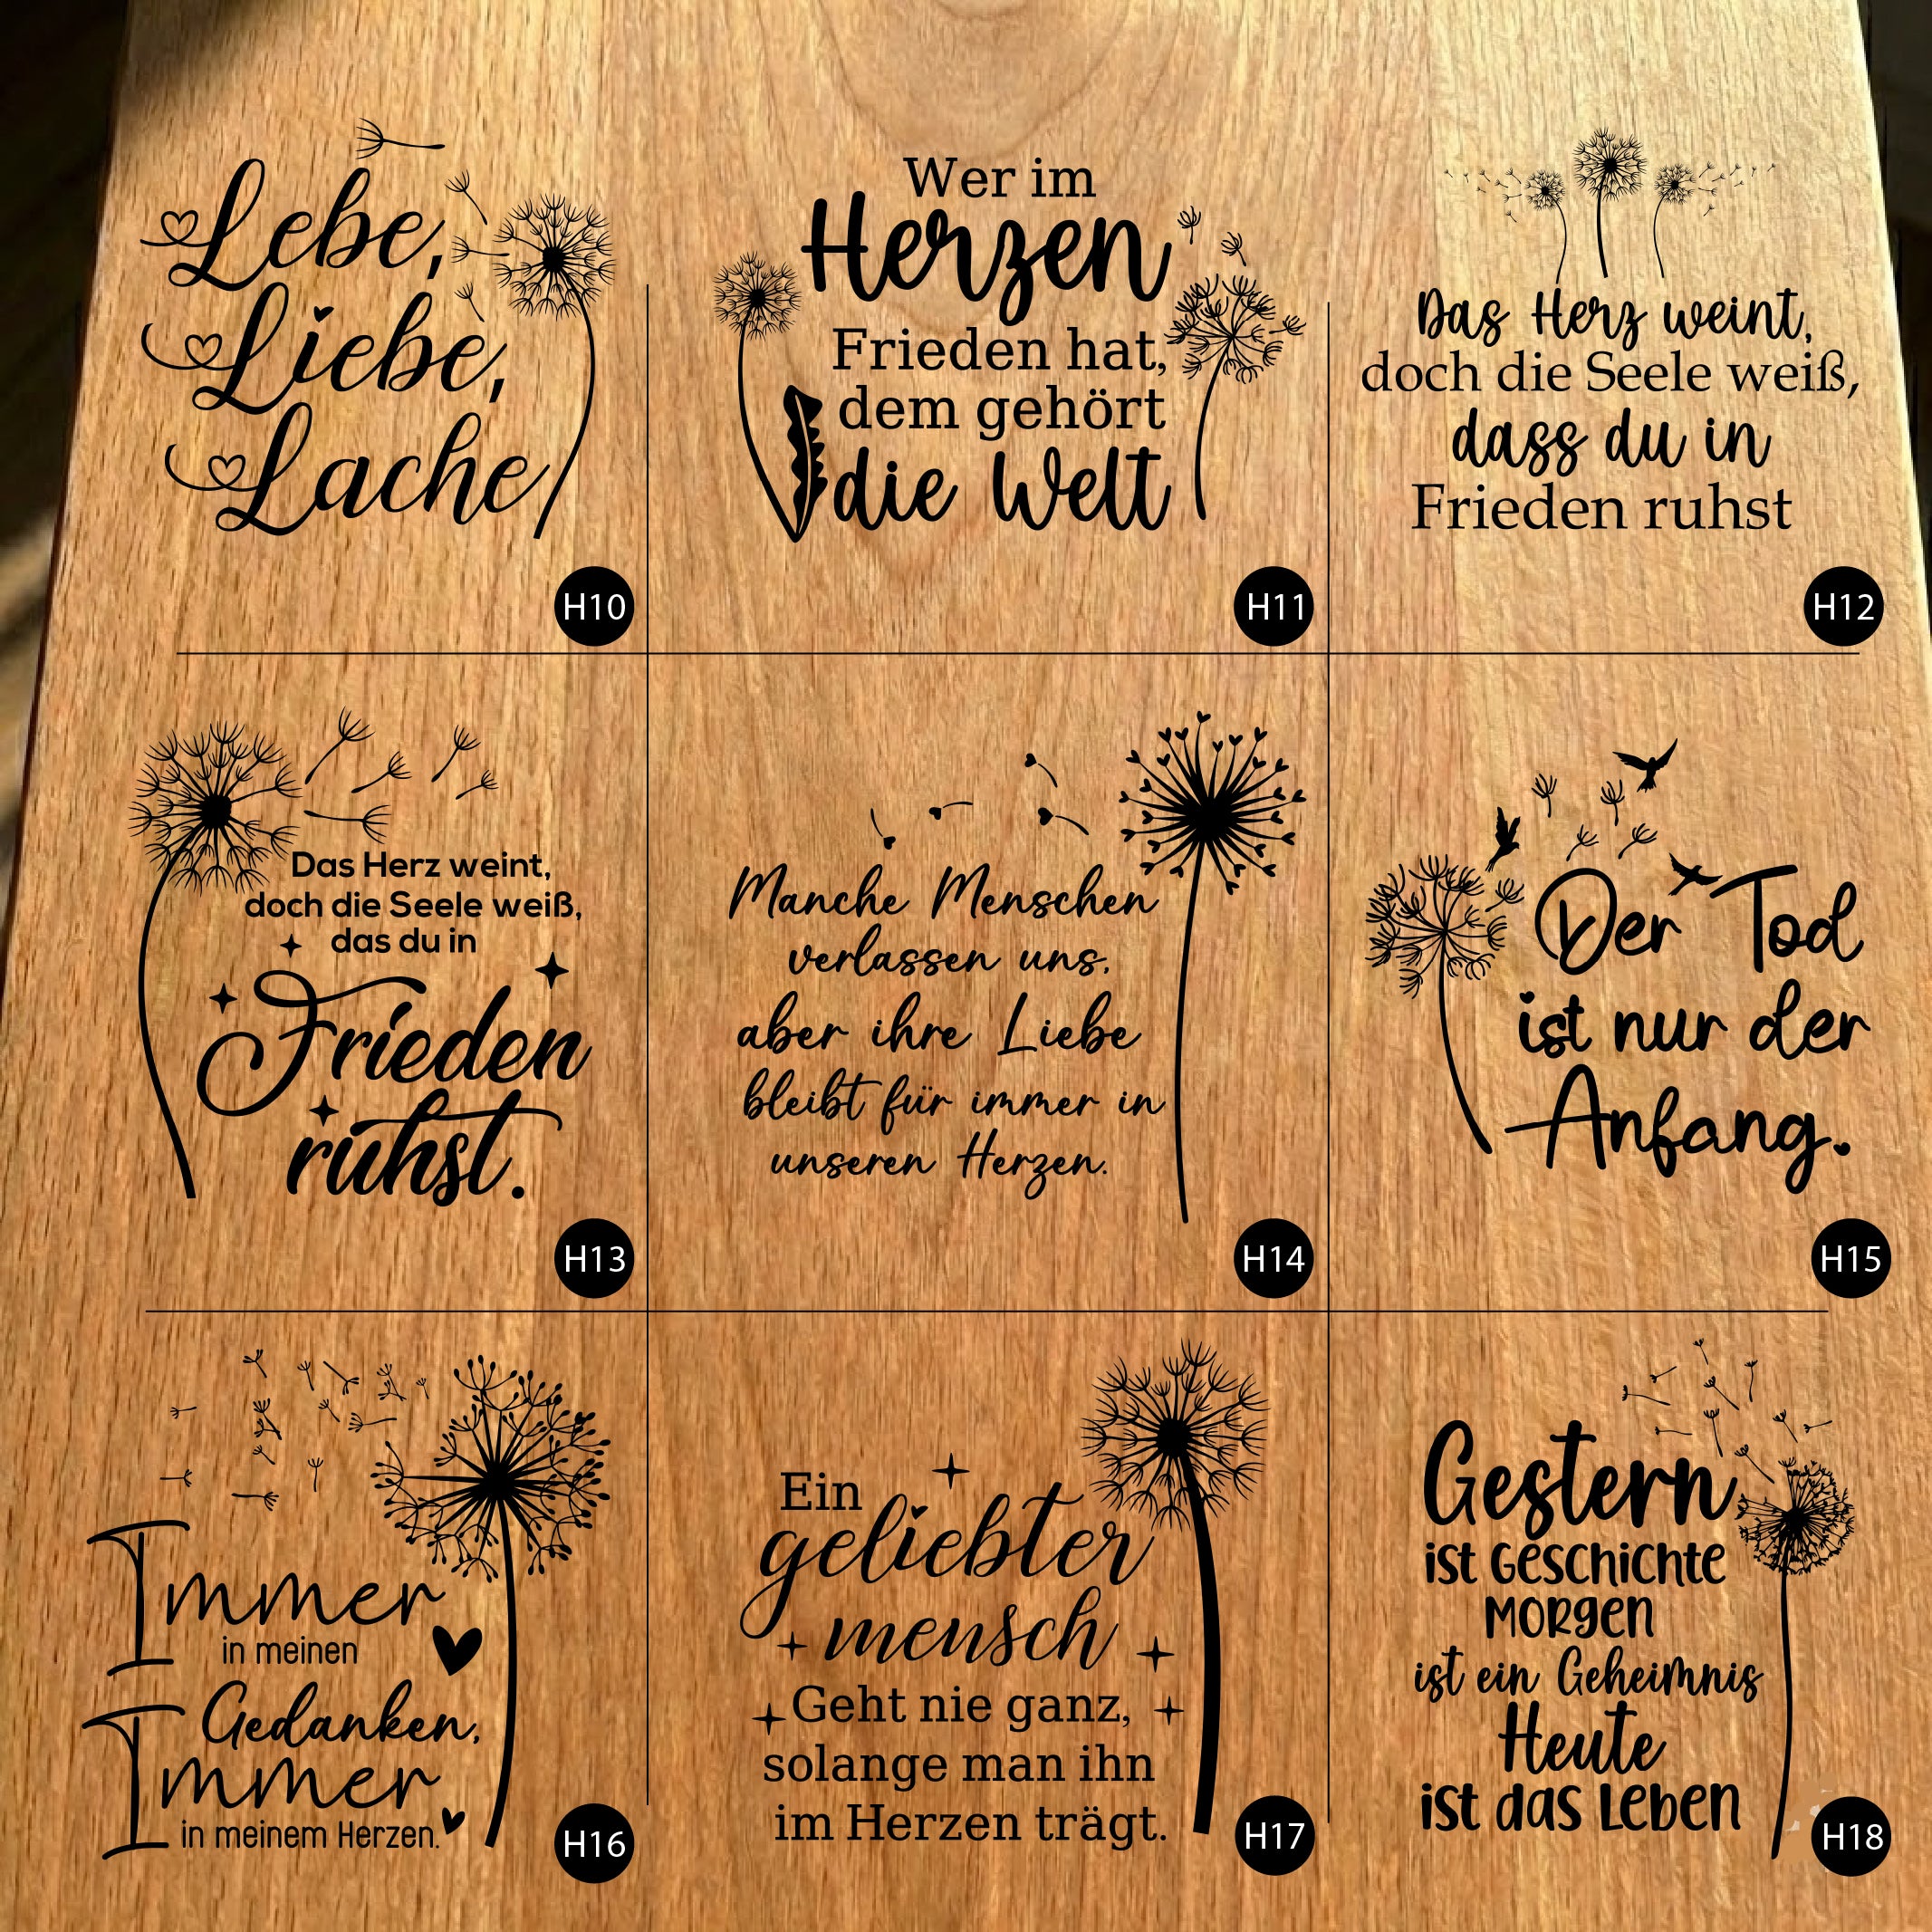 Lebe,
Liebe,
Lache
H10
Wer im
Herzen
Frieden hat,
dem gehört
die Welt
H11
Das Herz weint,
doch die Seele weiß,
dass du in
Frieden ruhst
H12
Das Herz weint,
doch die Seele weiß,
das du in
Frieden
ruhst.
H13
Manche Menschen
verlassen uns,
aber ihre Liebe
bleibt für immer in
unseren Herzen.
H14
Der Tod
ist nur der
Anfang.
H15
Immer
in meinen
Gedanken,
Immer
in meinem Herzen.
H16
Ein
geliebter
mensch
Geht nie ganz,
solange man ihn
im Herzen trägt.
H17
Gestern
ist Geschichte
Morgen
ist ein Geheimnis
Heute
ist das Leben
H18